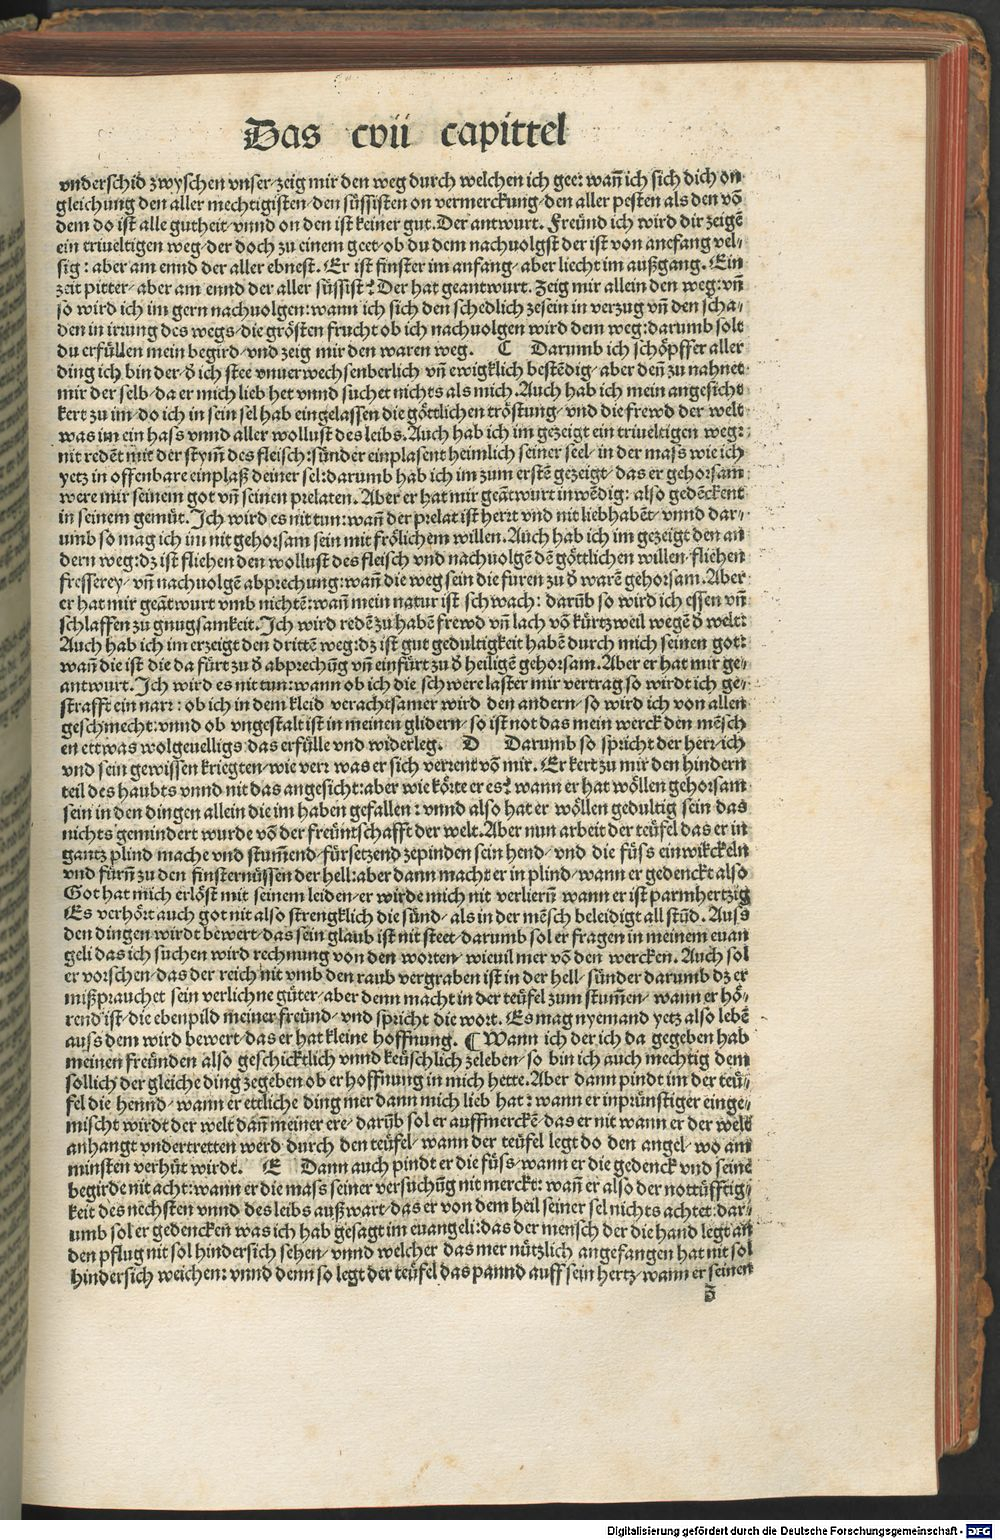 Das cvii capittel
vnderschid zwyschen vnser⸗zeig mir den weg durch welchen ich gee: wañ ich sich dich on
gleichung den aller mechtigisten⸗den süssisten on vermerckung⸗den aller pesten als den võ
dem do ist alle gutheit⸗vnnd on den ist keiner gut. Der antwurt. Freünd ich wird dir zeigẽ
ein triueltigen weg⸗der doch zu einem geet⸗ob du dem nachuolgst der ist von anefang vel⸗
sig: aber am ennd der aller ebnest. Er ist finster im anfang⸗aber liecht im außgang. Ein
zeit pitter⸗aber am ennd der aller süssist? Der hat geantwurt. Zeig mir allein den weg: vñ
so wird ich im gern nachuolgen: wann ich sich den schedlich zesein in verzug vñ den scha⸗
den in irrung des wegs⸗die grösten frucht ob ich nachuolgen wird dem weg: darumb solt
du erfüllen mein begird⸗vnd zeig mir den waren weg. C Darumb ich schöpffer aller
ding ich bin der⸗ð ich stee vnuerwechsenberlich vñ ewigklich bestẽdig⸗aber deñ zu nahnet
mir der selb⸗da er mich lieb het vnnd suchet nichts als mich. Auch hab ich mein angesicht
kert zu im⸗do ich in sein sel hab eingelassen die göttlichen tröstung⸗vnd die frewd der welt
was im ein hass vnnd aller wollust des leibs. Auch hab ich im gezeigt ein triueltigen weg:
nit redẽt mit der stym̃ des fleisch: sünder einplasent heimlich seiner seel⸗in der mass wie ich
yetz in offenbare einplaß deiner sel: darumb hab ich im zum erstẽ gezeigt⸗das er gehorsam
were mir seinem got vñ seinen prelaten. Aber er hat mir geãtwurt inwẽdig: also gedẽckent
in seinem gemüt. Ich wird es nit tun: wañ der prelat ist hertt vnd nit liebhabẽt⸗vnnd dar⸗
umb so mag ich im nit gehorsam sein mit frölichem willen. Auch hab ich im gezeigt den an
dern weg: dz ist fliehen den wollust des fleisch vnd nachuolgẽ dẽ göttlichen willen⸗fliehen
fresserey⸗vñ nachuolgẽ abprechung: wañ die weg sein die furen zu ð warẽ gehorsam. Aber
er hat mir geãtwurt vmb nichtẽ: wañ mein natur ist schwach: darũb so wird ich essen vñ
schlaffen zu gnugsamkeit. Ich wird redẽ zu habẽ frewd vñ lach võ kürtzweil wegẽ ð welt:
Auch hab ich im erzeigt den drittẽ weg: dz ist gut gedultigkeit habẽ durch mich seinen got:
wañ die ist die da fürt zu ð abprechũg vñ einfürt zu ð heiligẽ gehorsam. Aber er hat mir ge⸗
antwurt. Ich wird es nit tun: wann ob ich die schwere laster mir vertrag so wirdt ich ge⸗
strafft ein narr: ob ich in dem kleid verachtsamer wird den andern⸗so wird ich von allen
geschmecht: vnnd ob vngestalt ist in meinen glidern⸗so ist not das mein werck den mẽsch
en ettwas wolgeuelligs das erfülle vnd widerleg. D Darumb so spricht der herr⸗ich
vnd sein gewissen kriegten⸗wie verr was er sich verrent võ mir. Er kert zu mir den hindern
teil des haubts vnnd nit das angesicht: aber wie körte er es? wann er hat wöllen gehorsam
sein in den dingen allein die im haben gefallen: vnnd also hat er wöllen gedultig sein das
nichts gemindert wurde võ der freüntschafft der welt. Aber nun arbeit der teüfel das er in
gantz plind mache vnd stum̃end⸗fürsetzend zepinden sein hend⸗vnd die füss einwikckeln
vnd fürñ zu den finsternüssen der hell: aber dann macht er in plind⸗wann er gedenckt also
Got hat mich erlöst mit seinem leiden⸗er wirde mich nit verlierñ wann er ist parmhertzig
Es verhört auch got nit also strengklich die sünd⸗als in der mẽsch beleidigt all stũd. Auss
den dingen wirdt bewert⸗das sein glaub ist nit steet⸗darumb sol er fragen in meinem euan
geli das ich suchen wird rechnung von den worten⸗wieuil mer võ den wercken. Auch sol
er vorschen⸗das der reich nit vmb den raub vergraben ist in der hell⸗sünder darumb dz er
mißprauchet sein verlichne güter⸗aber denn macht in der teüfel zum stum̃en⸗wann er hö⸗
rend ist⸗die ebenpild meiner freünd⸗vnd spricht die wort. Es mag nyemand yetz also lebẽ
auss dem wird bewert⸗das er hat kleine hoffnung. ¶ Wann ich der ich da gegeben hab
meinen freünden also geschicktlich vnnd keüschlich zeleben⸗so bin ich auch mechtig dem
sollich der gleiche ding zegeben ob er hoffnung in mich hette. Aber dann pindt im der teü⸗
fel die hennd⸗wann er ettliche ding mer dann mich lieb hat: wann er inprünstiger einge⸗
mischt wirdt der welt dañ meiner ere⸗darũb sol er auffmerckẽ⸗das er nit wann er der welt
anhangt vndertretten werd durch den teüfel⸗wann der teüfel legt do den angel⸗wo am
minsten verhüt wirdt. E Dann auch pindt er die füss⸗wann er die gedenck vnd seine
begirde nit acht: wann er die mass seiner versuchũg nit merckt: wañ er also der nottüfftig⸗
keit des nechsten vnnd des leibs außwart⸗das er von dem heil seiner sel nichts achtet: dar⸗
umb sol er gedencken was ich hab gesagt im euangeli: das der mensch der die hand legt an
den pflug nit sol hindersich sehen⸗vnnd welcher das mer nützlich angefangen hat nit sol
hindersich weichen: vnnd denn so legt der teüfel das pannd auff sein hertz⸗wann er seinen
Digitalisierung gefördert durch die Deutsche Forschungsgemeinschaft - DFG